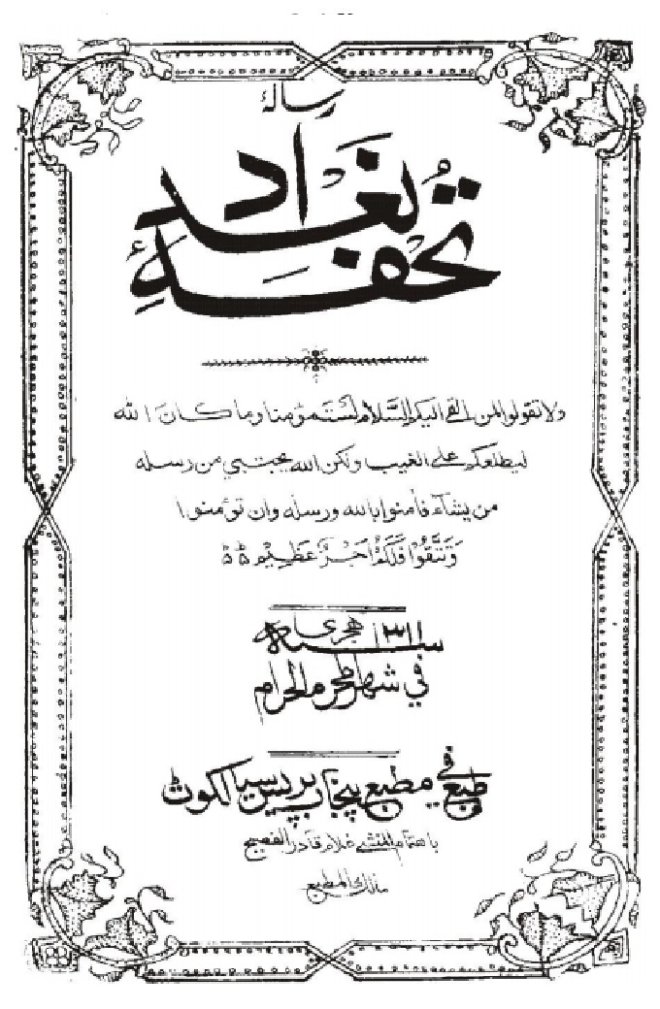 رسالۂ
تحفۂ بغداد
ولا تقولوا لمن القى اليكم السَّلام لست مؤمنا وما كان الله
ليطلعكم على الغيب ولكن الله يجتبي من رسله
من يشاء فآمنوا بالله ورسله وان تؤمنوا
وَتَتَّقُوْا فَلَكُمْ اَجْرٌ عَظِيْم
سنة ١٣١١ هجرى
في شهر المحرم الحرام
طبع في مطبع پنجاب پريس سيالكوٹ
باهتمام المنشى غلام قادر الفصيح
مالك المطبع